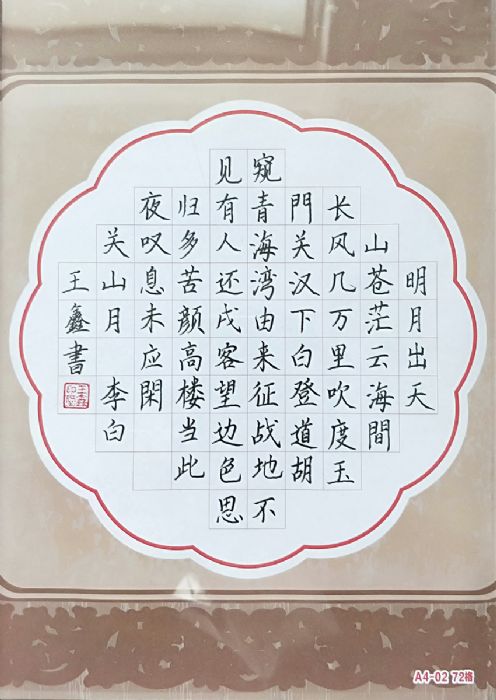 明月出天
山苍茫云海間
长风几万里吹度玉
門关汉下白登道胡
窥青海湾由来征战地不
见有人还戍客望边色思
归多苦颜高楼当此
夜叹息未应閑
关山月 李白
王鑫書
A4-02 72格